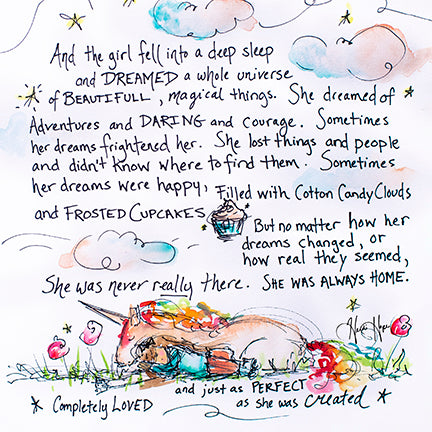 And the girl fell into a deep sleep
and DREAMED a whole universe
of BEAUTIFULL, magical things. She dreamed of
Adventures and DARING and courage. Sometimes
her dreams frightened her. She lost things and people
and didn't know where to find them. Sometimes
her dreams were happy, Filled with Cotton Candy Clouds
and FROSTED CUPCAKES
But no matter how her
dreams changed, or
how real they seemed,
She was never really there. SHE WAS ALWAYS HOME.
Completely LOVED and just as PERFECT
as she was created